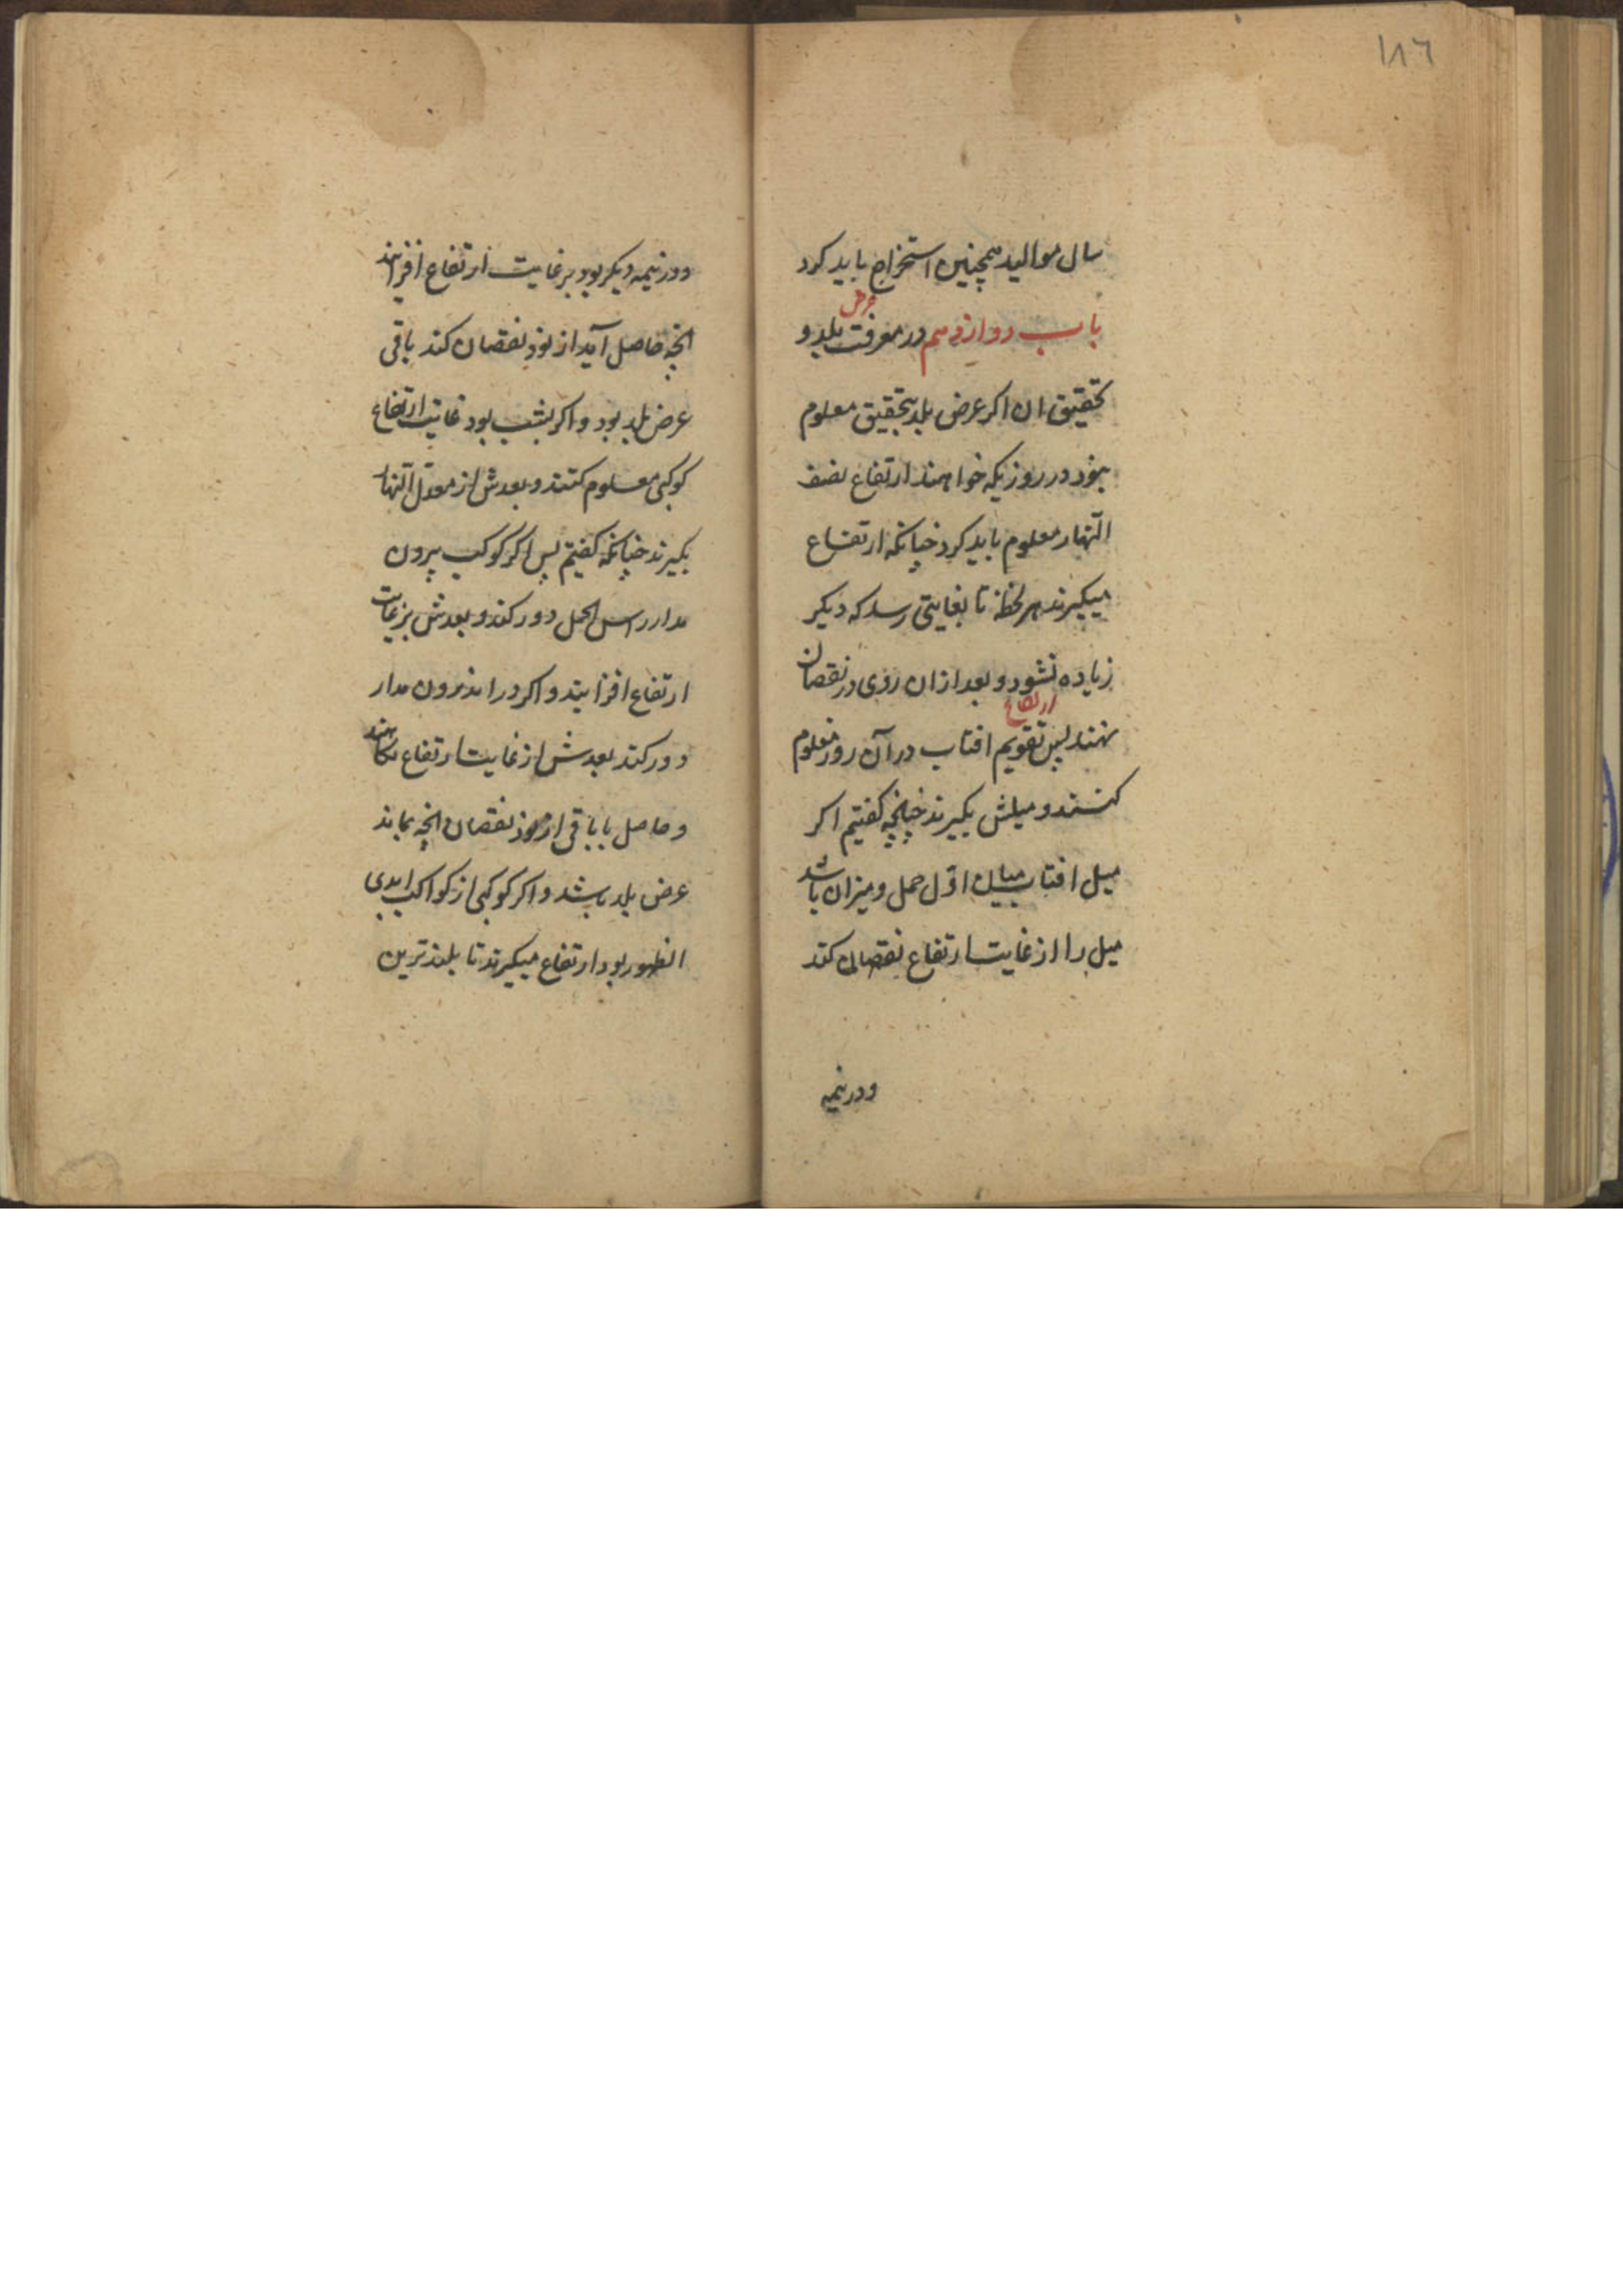 ١٨٦
سال موالید همچنین استخراج باید کرد
باب دوازدهم در معرفت عرض بلد و
تحقیق ان اکر عرض بلد بتحقیق معلوم
نبود در روزیکه خواهند ارتفاع نصف
النّهار معلوم باید کرد چنانکه ارتفاع
میکیرند هر لحظه تا بغایتی رسد که دیکر
زیاده نشود و بعد ازان روی در نقصان
نهند ارتفاع پس تقویم افتاب در آن روز معلوم
کنند و میلش بکیرند چنانچه کفتیم اکر
میل افتاب میان اوّل حمل و میزان باشد
میل را از غایت ارتفاع نقصان کند
ودر نیمه
ودر نیمه دیکر بود بر غایت ارتفاع افزایند
انچه حاصل آید از نود نقصان کند باقی
عرض بلد بود و اکر بشب بود غایت ارتفاع
کوکبی معلوم کنند و بعدش از معدّل النّهار
بکیرند چنانکه کفتیم پس اکر کوکب بیرون
مدار راس الحمل دور کند و بعدش بر غایت
ارتفاع افزایند و اکر در اندرون مدار
دور کند بعدش از غایت ارتفاع بکاهند
و حاصل یا باقی از نود نقصان انچه بماند
عرض بلد باشد و اکر کوکبی از کواکب ابدی
الظهور بود ارتفاع میکیرند تا بلندترین